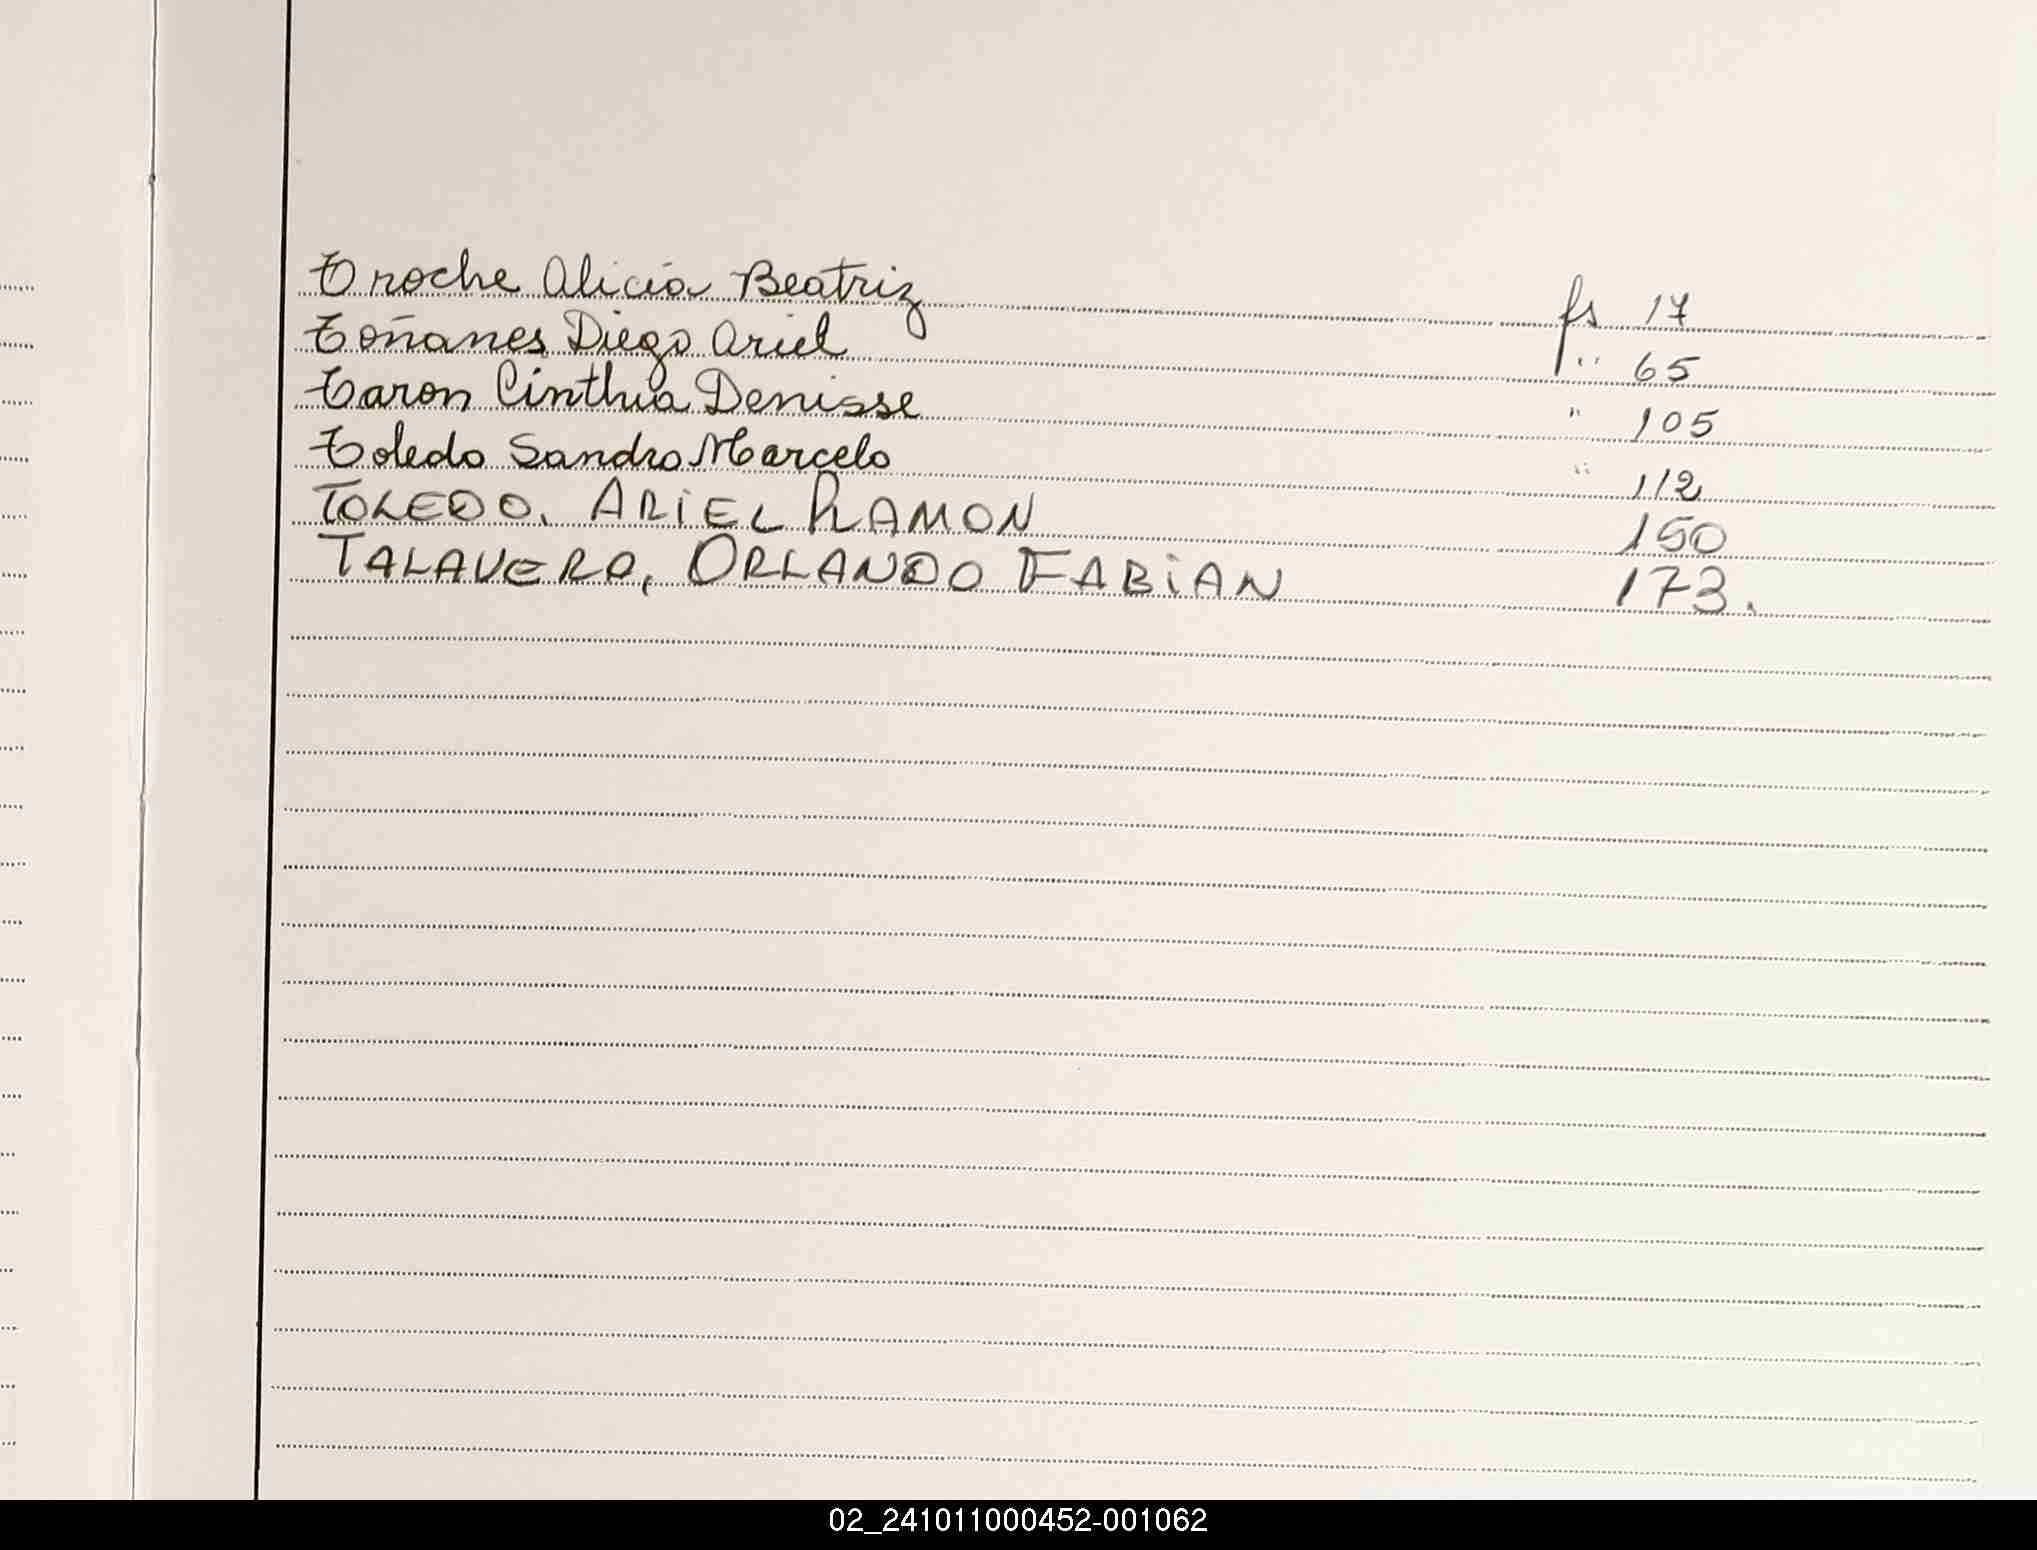 Troche Alicia Beatriz fs 17
Toñanes Diego Ariel " 65
Taron Cinthia Denisse " 105
Toledo Sandro Marcelo " 112
TOLEDO, ARIEL RAMON 150
TALAVERA, ORLANDO FABIAN 173.
02_241011000452-001062